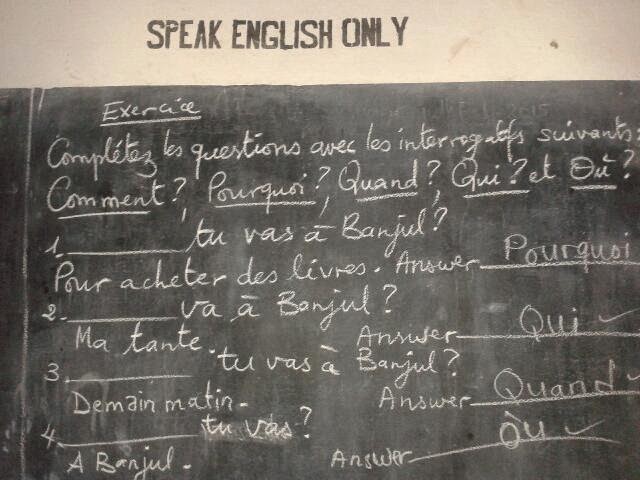 SPEAK ENGLISH ONLY
Exercice
Complétez les questions avec les interrogatifs suivants:
Comment?, Pourquoi?, Quand?, Qui? et Où?
1. ________ tu vas à Banjul?
Pour acheter des livres. Answer Pourquoi
2. ________ va à Banjul?
Ma tante. Answer Qui ✓
3. ________ tu vas à Banjul?
Demain matin. Answer Quand ✓
4. ________ tu vas?
A Banjul. Answer Òu ✓